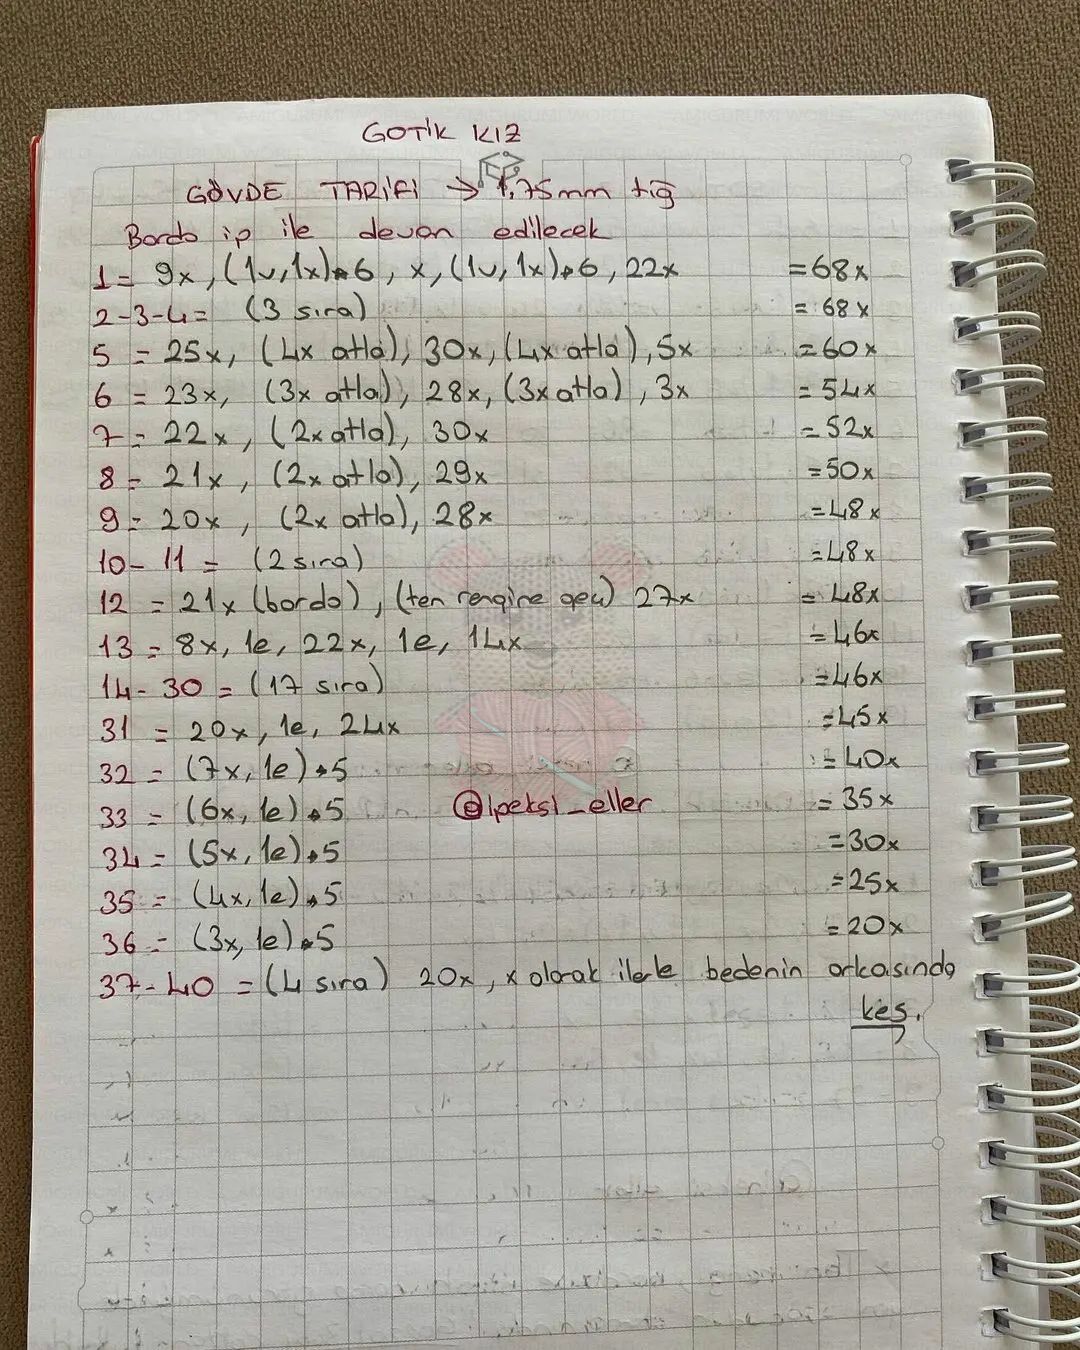 GOTİK KIZ
GÖVDE TARİFİ → 1.75mm tığ
Bordo ip ile devam edilecek
1 = 9x, (1v, 1x)*6, x, (1v, 1x)*6, 22x = 68x
2-3-4= (3 sıra) = 68x
5 = 25x, (4x atla), 30x, (4x atla), 5x = 60x
6 = 23x, (3x atla), 28x, (3x atla), 3x = 54x
7 = 22x, (2x atla), 30x = 52x
8 = 21x, (2x atla), 29x = 50x
9 = 20x, (2x atla), 28x = 48x
10-11 = (2 sıra) = 48x
12 = 21x (bordo), (ten rengine geç) 27x = 48x
13 = 8x, 1e, 22x, 1e, 14x = 46x
14-30 = (17 sıra) = 46x
31 = 20x, 1e, 24x = 45x
32 = (7x, 1e)*5 = 40x
33 = (6x, 1e)*5 = 35x
@ipeksi_eller
34 = (5x, 1e)*5 = 30x
35 = (4x, 1e)*5 = 25x
36 = (3x, 1e)*5 = 20x
37-40 = (4 sıra) 20x, x olarak ilerle bedenin arkasında
kes.